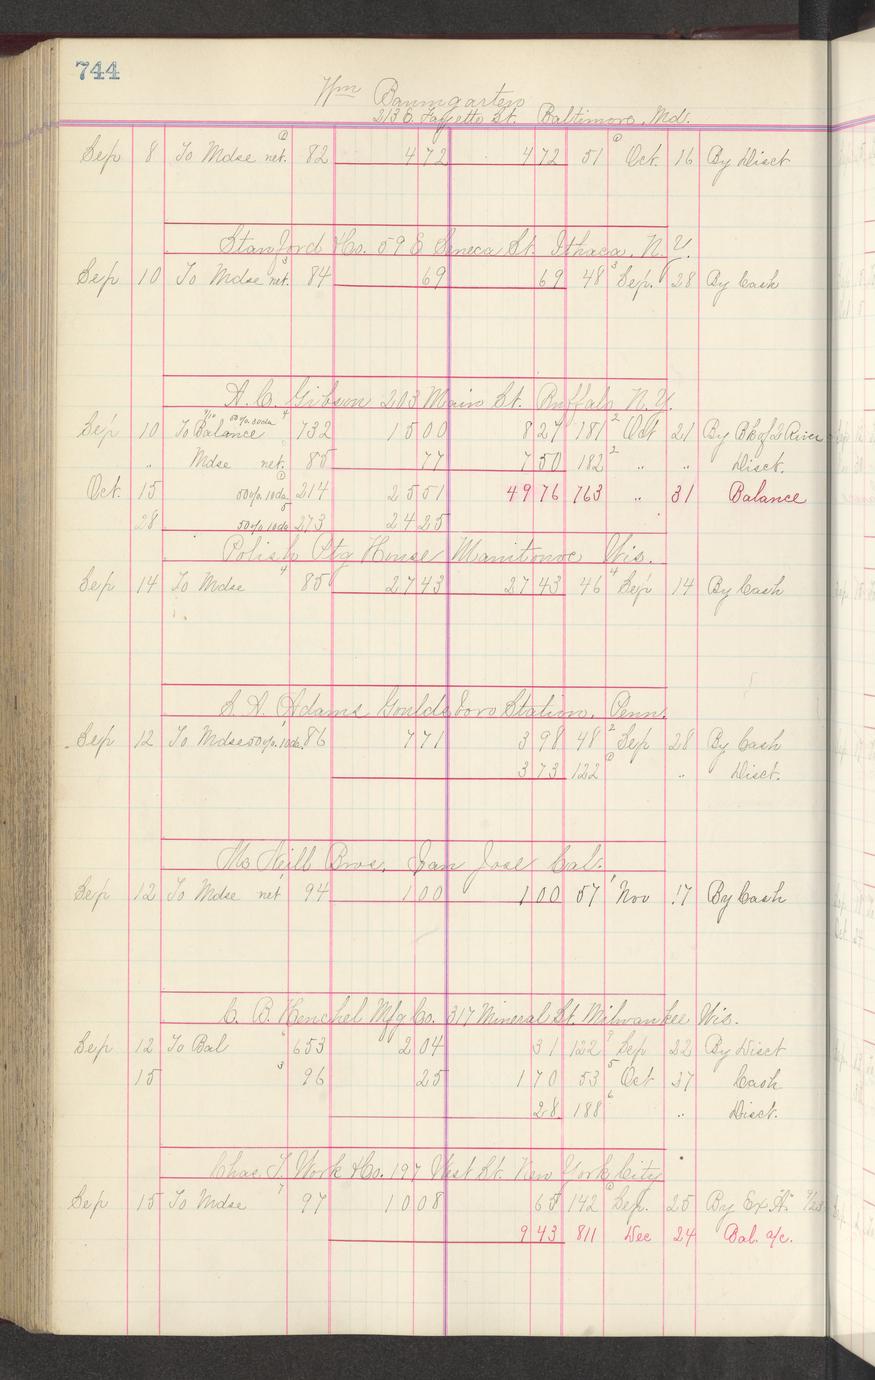 744
Wm Baumgarten
213 E. Fayette St. Baltimore, Md.
Sep 8 To Mdse net. 82 4 72 4 72 51 Oct. 16 By Disct
Stanford & Co. 59 E Seneca St. Ithaca, N.Y.
Sep 10 To Mdse net. 84 69 69 48 Sep. 28 By Cash
A. C. Gibson 203 Main St. Buffalo N.Y.
Sep 10 To Balance 732 15 00 8 27 181 Oct 21 By Bk of 2 River
" Mdse net. 85 77 7 50 182 " " Disct.
Oct. 15 50% 10da 214 25 51 49 76 763 " 31 Balance
28 50% 10da 273 24 25
Polish Ptg House Manitowoc Wis.
Sep 14 To Mdse 85 27 43 27 43 46 Sep 14 By Cash
S. A. Adams Gouldsboro Station, Penn.
Sep 12 To Mdse 50% 10da. 86 7 71 3 98 48 Sep 28 By Cash
3 73 122 " Disct.
Mc Neill Bros. San Jose Cal.
Sep 12 To Mdse net 94 1 00 1 00 57 Nov 17 By Cash
C. B. Henchel Mfg Co. 317 Mineral St. Milwaukee Wis.
Sep 12 To Bal 653 2 04 31 122 Sep 22 By Disct
15 96 25 1 70 53 Oct 27 Cash
28 188 " Disct.
Chas. T. Work & Co. 197 West St. New York City
Sep 15 To Mdse 97 10 08 65 142 Sep. 25 By Ex "A"
9 43 811 Dec 24 Bal. a/c.